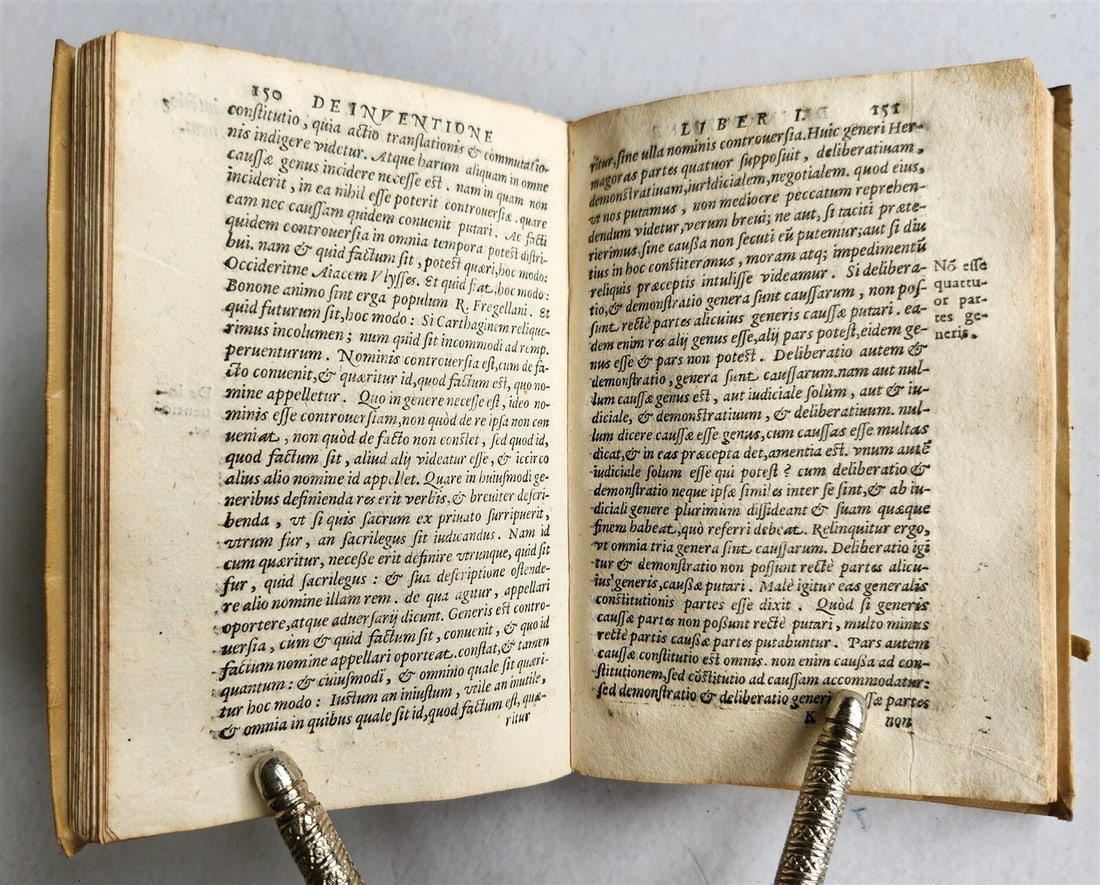 150 DE INVENTIONE
constitutio, quia actio translationis & commutatio-
nis indigere videtur. Atque harum aliquam in omne
caussæ genus incidere necesse est. nam in quam non
inciderit, in ea nihil esse poterit controuersiæ. quare
eam nec caussam quidem conuenit putari. Ac facti
quidem controuersia in omnia tempora potest distri-
bui. nam & quid factum sit, potest quæri, hoc modo:
Occideritne Aiacem Vlysses. Et quid fiat, hoc modo:
Bonone animo sint erga populum R. Fregellani. Et
quid futurum sit, hoc modo: Si Carthaginem relique-
rimus incolumen; num quid sit incommodi ad remp.
peruenturum. Nominis controuersia est, cum de fa-
cto conuenit, & quæritur id, quod factum est, quo no-
mine appelletur. Quo in genere necesse est, ideo no-
minis esse controuersiam, non quòd de re ipsa non con
ueniat, non quòd de facto non constet, sed quòd id,
quod factum sit, aliud alij videatur esse, & iccirco
alius alio nomine id appellet. Quare in huiusmodi ge-
neribus definienda res erit verbis, & breuiter descri-
benda, vt si quis sacrum ex priuato surripuerit,
vtrum fur, an sacrilegus sit iudicandus. Nam id
cum quæritur, necesse erit definire vtrunque, quid sit
fur, quid sacrilegus: & sua descriptione ostende-
re alio nomine illam rem. de qua agitur, appellari
oportere, atque aduersarij dicunt. Generis est contro-
uersia, cum & quid factum sit, conuenit, & quo id
factum nomine appellari oporteat. constat, & tamen
quantum: & cuiusmodi, & omnino quale sit quæri-
tur hoc modo: Iustum an iniustum, vtile an inutile,
& omnia in quibus quale sit id, quod factum est, quæ-
ritur
LIBER I. 151
ritur, sine ulla nominis controuersia. Huic generi Her-
magoras partes quatuor supposuit, deliberatiuam,
demonstratiuam, iuridicialem, negotialem. quod eius,
vt nos putamus, non mediocre peccatum reprehen-
dendum videtur, verum breui; ne aut, si taciti præte-
rierimus, sine caussa non secuti eũ putemur; aut si diu
tius in hoc constiterimus, moram atq; impedimentũ
reliquis præceptis intulisse videamur. Si delibera-
tio, & demonstratio genera sunt caussarum, non pos-
sunt rectè partes alicuius generis caussæ putari. ea-
dem enim res alij genus esse, alij pars potest, eidem ge-
nus esse & pars non potest. Deliberatio autem &
demonstratio, genera sunt caussarum. nam aut nul-
lum caussæ genus est, aut iudiciale solùm, aut & iu-
diciale, & demonstratiuum, & deliberatiuum. nul-
lum dicere caussæ esse genus, cum caussas esse multas
dicat, & in eas præcepta det, amentia est. vnum autẽ
iudiciale solum esse qui potest? cum deliberatio &
demonstratio neque ipsæ similes inter se sint, & ab iu-
diciali genere plurimum dissideant & suam quæque
finem habeat, quò referri debeat. Relinquitur ergo,
vt omnia tria genera sint caussarum. Deliberatio igi
tur & demonstratio non possunt rectè partes alicu-
ius generis, caussæ putari. Malè igitur eas generalis
constitutionis partes esse dixit. Quòd si generis
caussæ partes non possunt rectè putari, multo minus
rectè partis caussæ partes putabuntur. Pars autem
caussæ constitutio est omnis. non enim caussa ad con-
stitutionem, sed cõstitutio ad caussam accommodatur:
sed demonstratio & deliberatio generi ssæ partes
K non
Nõ esse
quattu-
or par-
tes ge-
neris.